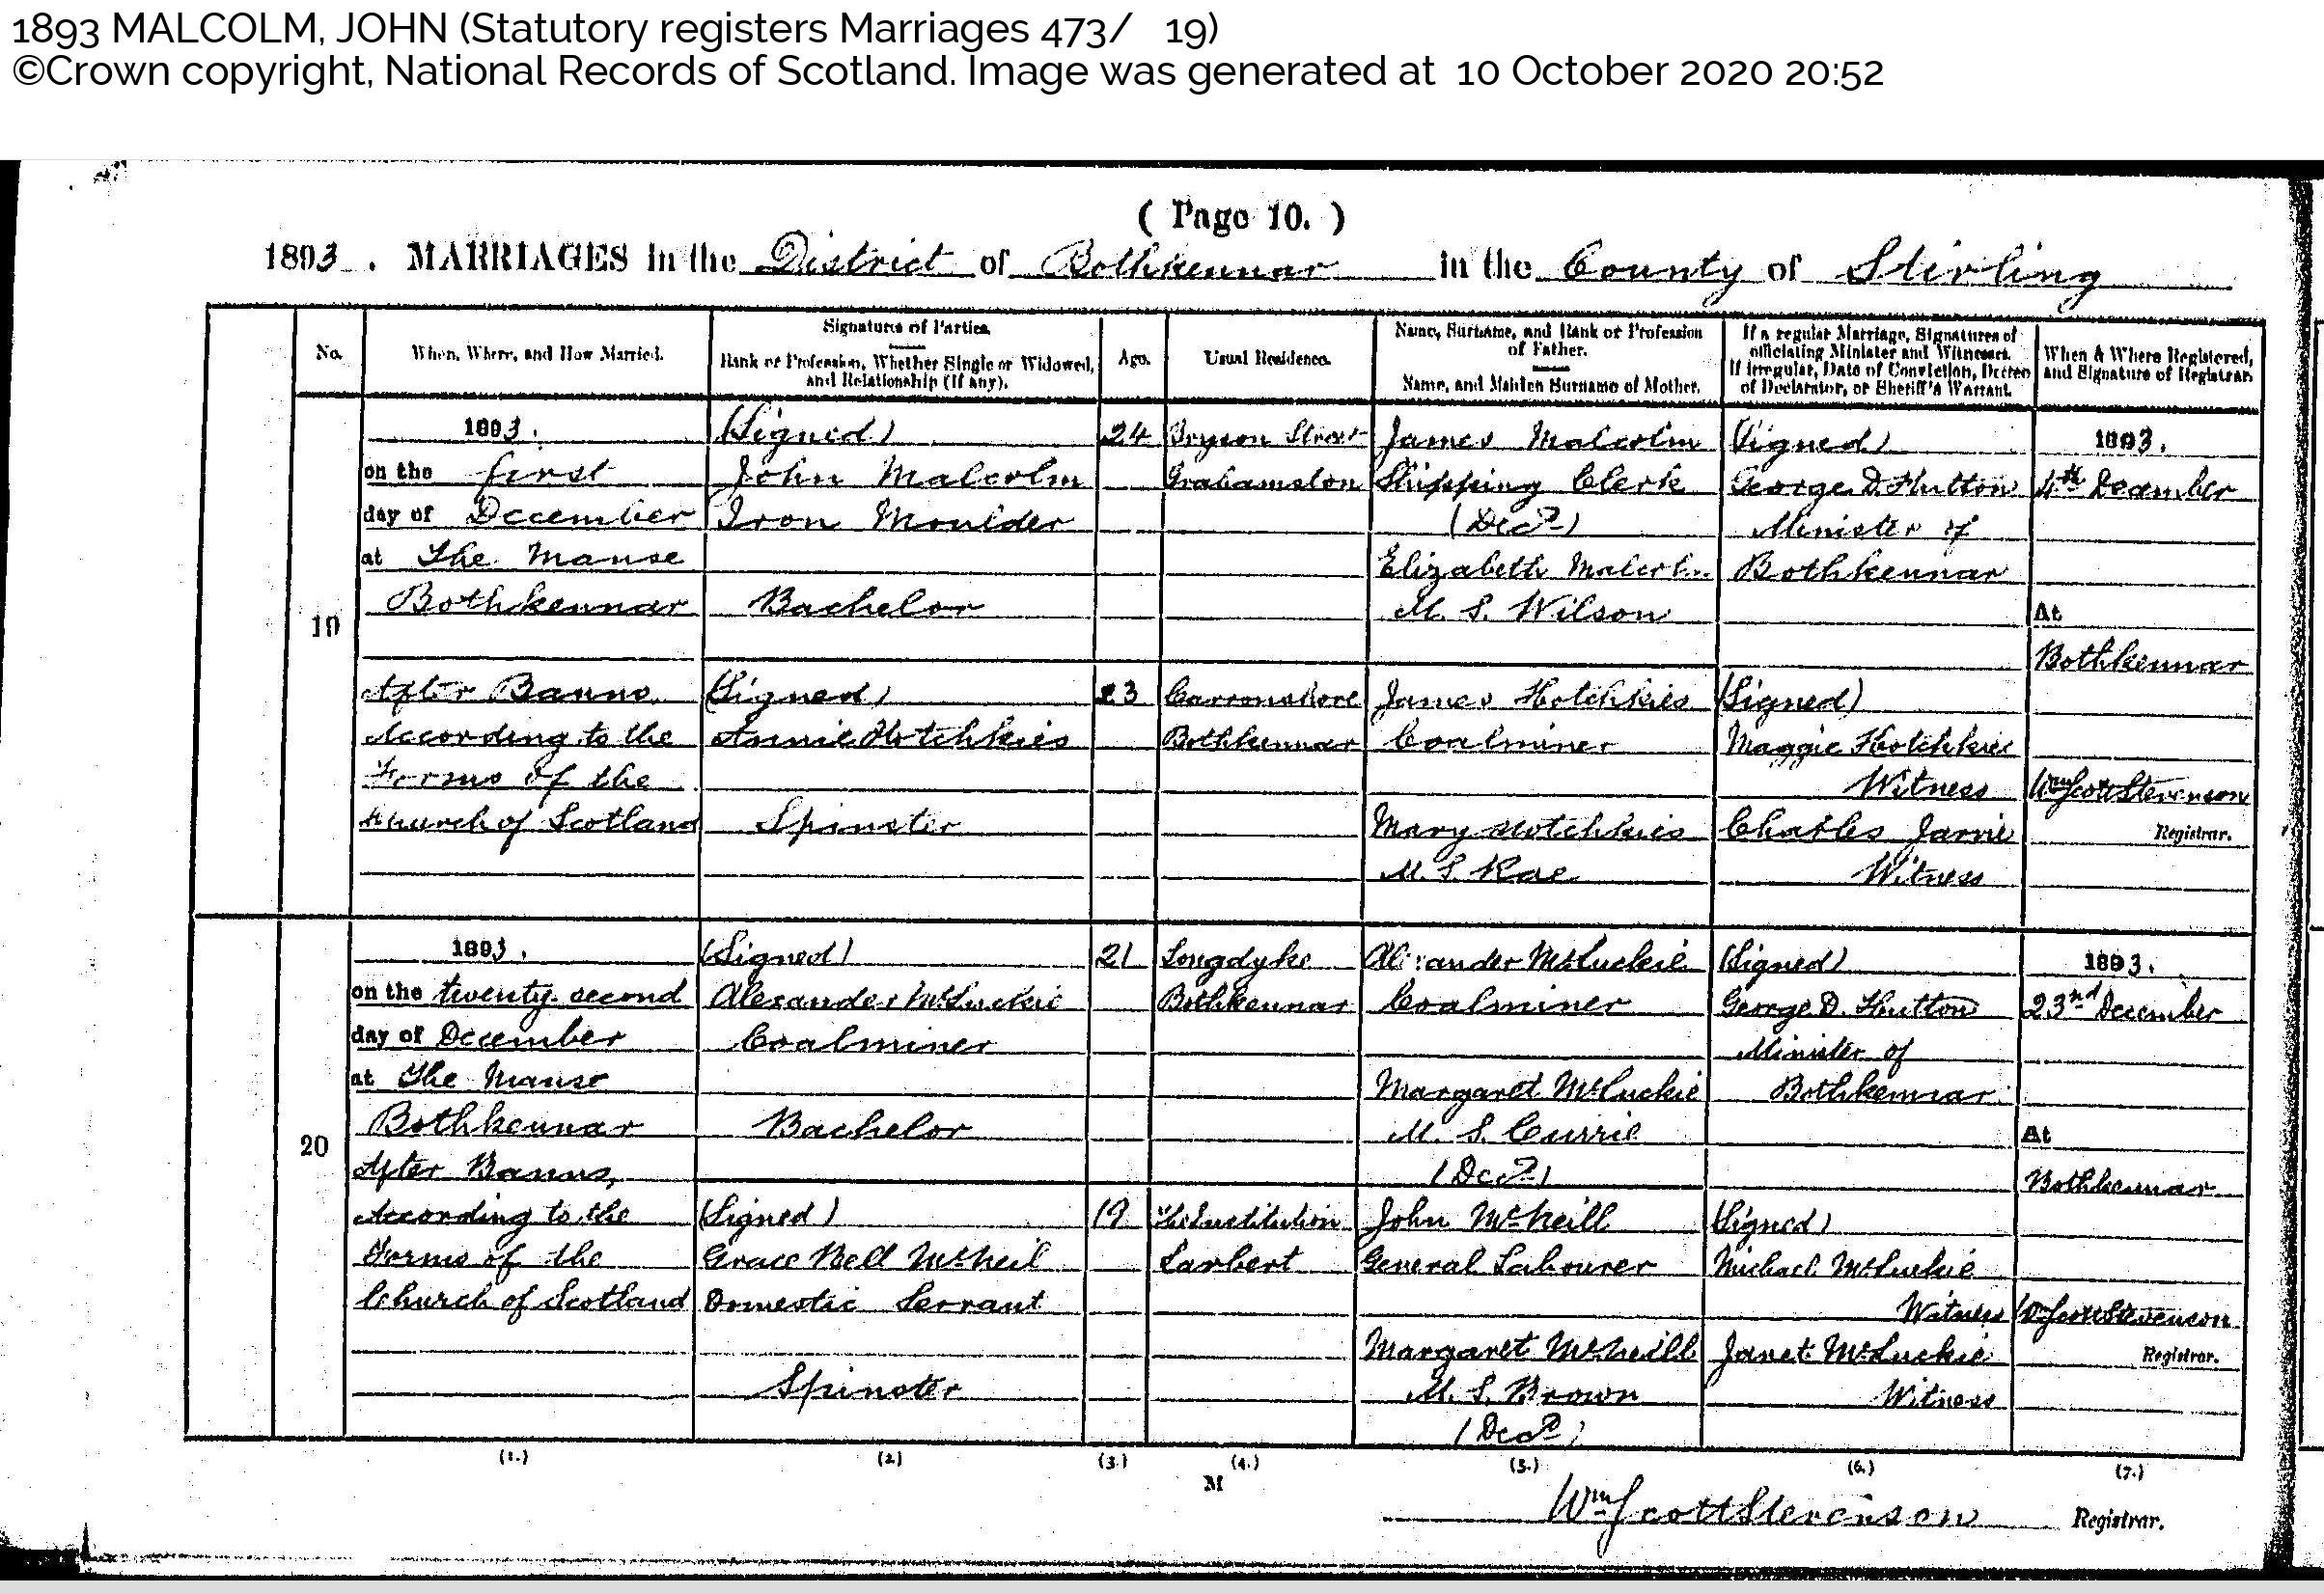 1893 MALCOLM, JOHN (Statutory registers Marriages 473/ 19)
©Crown copyright, National Records of Scotland. Image was generated at 10 October 2020 20:52
( Page 10. )
1893. MARRIAGES in the District of Bothkennar in the County of Stirling
No.
When, Where, and How Married.
Signatures of Parties.
Rank or Profession, Whether Single or Widowed,
and Relationship (if any).
Age.
Usual Residence.
Name, Surname, and Rank or Profession
of Father.
Name, and Maiden Surname of Mother.
If a regular Marriage, Signatures of
officiating Minister and Witnesses.
If irregular, Date of Conviction, Decree
of Declarator, or Sheriff's Warrant.
When & Where Registered,
and Signature of Registrar.
19
1893.
on the first
day of December
at The Manse
Bothkennar
After Banns,
According to the
Forms of the
Church of Scotland
(Signed)
John Malcolm
Iron Moulder
Bachelor
(Signed)
Annie Hotchkies
Spinster
24
23
Bryson Street
Grahamston
Carronshore
Bothkennar
James Malcolm
Shipping Clerk
(Decd)
Elizabeth
M. S. Wilson
James Hotchkies
Coalminer
Mary Hotchkies
M. S. Rae
(Signed)
George D. Hutton
Minister of
Bothkennar
(Signed)
Maggie Hotchkies
Witness
Charles Jarvie
Witness
1893.
4th December
At
Bothkennar
Wm Scott Stevenson
Registrar.
20
1893.
on the twenty second
day of December
at The Manse
Bothkennar
After Banns,
According to the
Forms of the
Church of Scotland
(Signed)
Alexander McLuckie
Coalminer
Bachelor
(Signed)
Grace Bell McNeil
Domestic Servant
Spinster
21
19
Longdyke
Bothkennar
The Institution
Larbert
Alexander McLuckie
Coalminer
Margaret McLuckie
M. S. Currie
(Decd)
John McNeill
General Labourer
Margaret McNeill
M. S. Brown
(Decd)
(Signed)
George D. Hutton
Minister of
Bothkennar
(Signed)
Michael McLuckie
Witness
Janet McLuckie
Witness
1893.
23nd December
At
Bothkennar
Wm Scott Stevenson
Registrar.
(1.) (2.) (3.) (4.) (5.) (6.) (7.)
M
Wm Scott Stevenson Registrar.